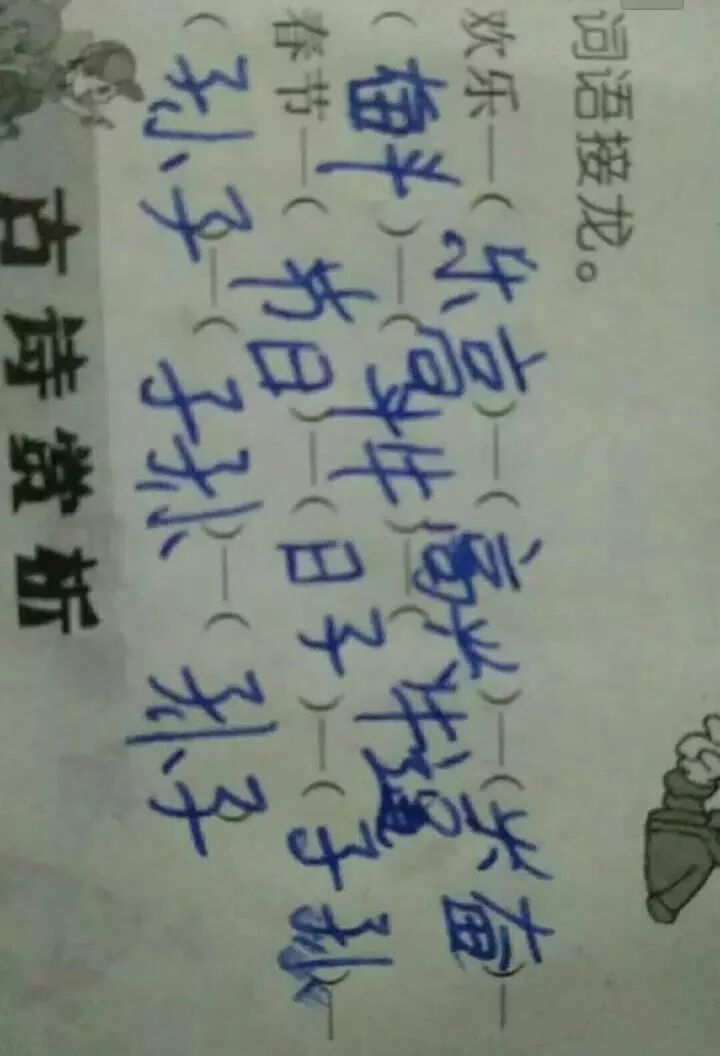 词语接龙。
欢乐—(乐高)—(高兴)—(兴奋)—
(奋斗)—(斗牛)—(牛
春节—(节日)—(日子)—(子孙)—
(孙子)—(子孙)—(孙子
古诗赏析